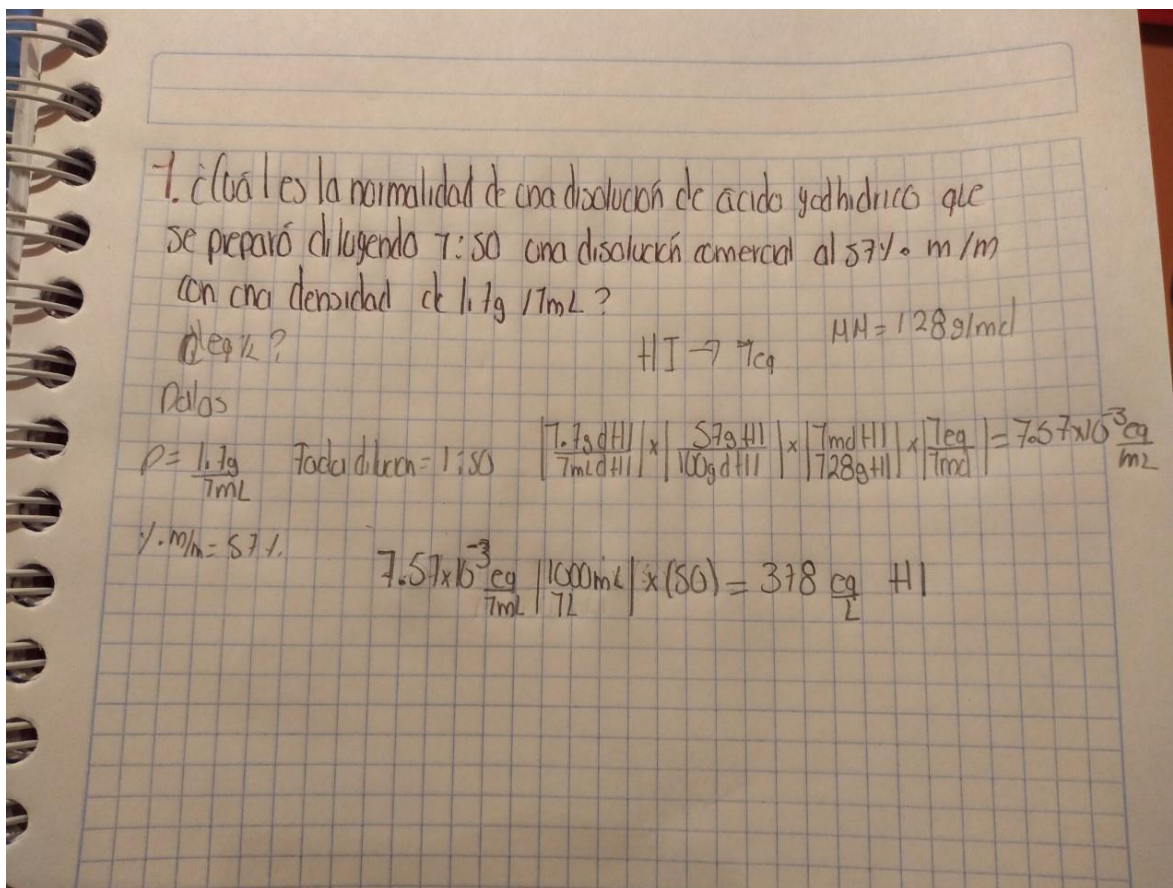 1. ¿Cuál es la normalidad de una disolución de ácido yodhidrico que
se preparó diluyendo 1:50 una disolución comercial al 57% m/m
con una densidad de 1.7g/1mL?
eq/L? HI → 1eq MM = 128g/mol
Datos
ρ = 1.7g/1mL Factor dilucion = 1:50 |1.7g dHI/1mL dHI| x |57g HI/100g dHI| x |1mol HI/128g HI| x |1eq/1mol| = 7.57x10^-3 eq/mL
%m/m = 57%
7.57x10^-3 eq/1mL |1000mL/1L| x (50) = 378 eq/L HI